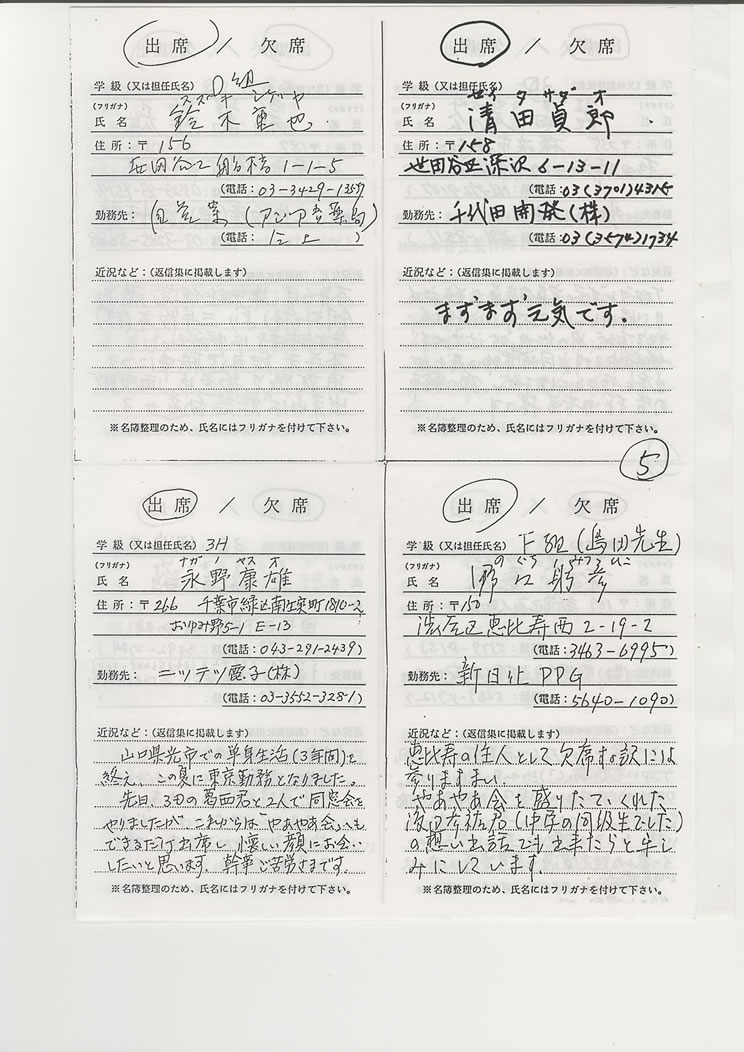 出席 / 欠席
学級（又は担任氏名） D組
（フリガナ） スズキ
氏名 鈴木
住所：〒156
世田谷区船橋1-1-5
（電話：03-3429-1357
勤務先： 自営業（アジア音楽局）
（電話： 仝上 ）
近況など：（返信集に掲載します）
※名簿整理のため、氏名にはフリガナを付けて下さい。
出席 / 欠席
学級（又は担任氏名）
（フリガナ） セイタ サダオ
氏名 清田貞郎
住所：〒158
世田谷区深沢6-13-11
（電話：03(3701)4315
勤務先： 千代田開発（株）
（電話：03(3574)1734
近況など：（返信集に掲載します）
まずまず元気です。
※名簿整理のため、氏名にはフリガナを付けて下さい。
5
出席 / 欠席
学級（又は担任氏名） 3H
（フリガナ） ナガノ ヤスオ
氏名 永野康雄
住所：〒266 千葉市緑区南生実町1810-2
おゆみ野5-1 E-13
（電話：043-291-2439）
勤務先： ニッテツ電子（株）
（電話：03-3552-3281）
近況など：（返信集に掲載します）
山口県光市での単身生活（3年間）を
終え、この夏に東京勤務となりました。
先日、3Dの葛西君と2人で同窓会を
やりましたが、これからは"やあやあ会"へも
できるだけ出席し懐しい顔にお会い
したいと思います。幹事ご苦労さまです。
※名簿整理のため、氏名にはフリガナを付けて下さい。
出席 / 欠席
学級（又は担任氏名） F組（島田先生）
（フリガナ） のぐち みつひこ
氏名 野口
住所：〒150
渋谷区恵比寿西2-19-2
（電話：3463-6995）
勤務先： 新日化 PPG
（電話： 5640-1090）
近況など：（返信集に掲載します）
恵比寿の住人として欠席する訳には
参りますまい。
やあやあ会を盛りたてくれた
君（中学の同級生でした）
の想い出話でも出来たらと楽し
みにしています。
※名簿整理のため、氏名にはフリガナを付けて下さい。